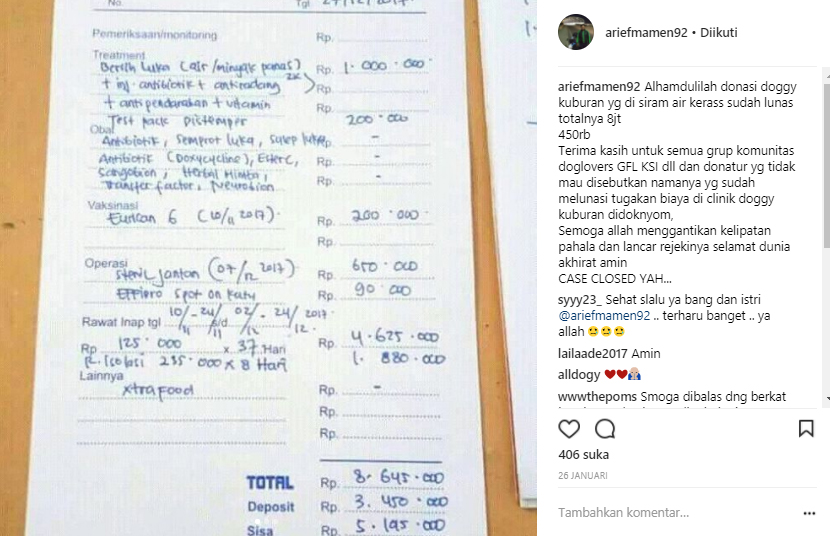 No.
Tgl 27/12/2017
Pemeriksaan/monitoring Rp.
Treatment
Bersih Luka (air/minyak panas) Rp. 1.000.000
+ inj. antibiotik + antiradang 2x Rp.
+ antipendarahan + vitamin Rp.
Test pack Distemper 200.000
Obat
Antibiotik, Semprot luka, salep luka Rp. -
Antibiotic (Doxycycline), Ester C, Rp. -
Sangobion, Herbal Mimba, Rp. -
Transfer factor, Neurobion
Vaksinasi
Eurican 6 (10/11 2017). Rp. 200.000.
Rp.
Operasi
Steril jantan (07/12 2017). Rp. 650.000
Effipro Spot on Kutu Rp. 90.000
Rawat Inap tgl 10/11-24/11 s/d 02/12-24/12 2017.
Rp 125.000 x 37 Hari Rp. 4.625.000
R. Isolasi 235.000 x 8 Hari Rp. 1.880.000
Lainnya
xtrafood Rp. -
Rp.
Rp.
TOTAL Rp. 8.645.000
Deposit Rp. 3.450.000
Sisa Rp. 5.195.000
ariefmamen92 • Diikuti
ariefmamen92 Alhamdulilah donasi doggy
kuburan yg di siram air kerass sudah lunas
totalnya 8jt
450rb
Terima kasih untuk semua grup komunitas
doglovers GFL KSI dll dan donatur yg tidak
mau disebutkan namanya yg sudah
melunasi tugakan biaya di clinik doggy
kuburan didoknyom,
Semoga allah menggantikan kelipatan
pahala dan lancar rejekinya selamat dunia
akhirat amin
CASE CLOSED YAH...
syyy23_ Sehat slalu ya bang dan istri
@ariefmamen92 .. terharu banget .. ya
allah 😢😢😢
lailaade2017 Amin
alldogy ❤❤🙏
wwwthepoms Smoga dibalas dng berkat
406 suka
26 JANUARI
Tambahkan komentar...